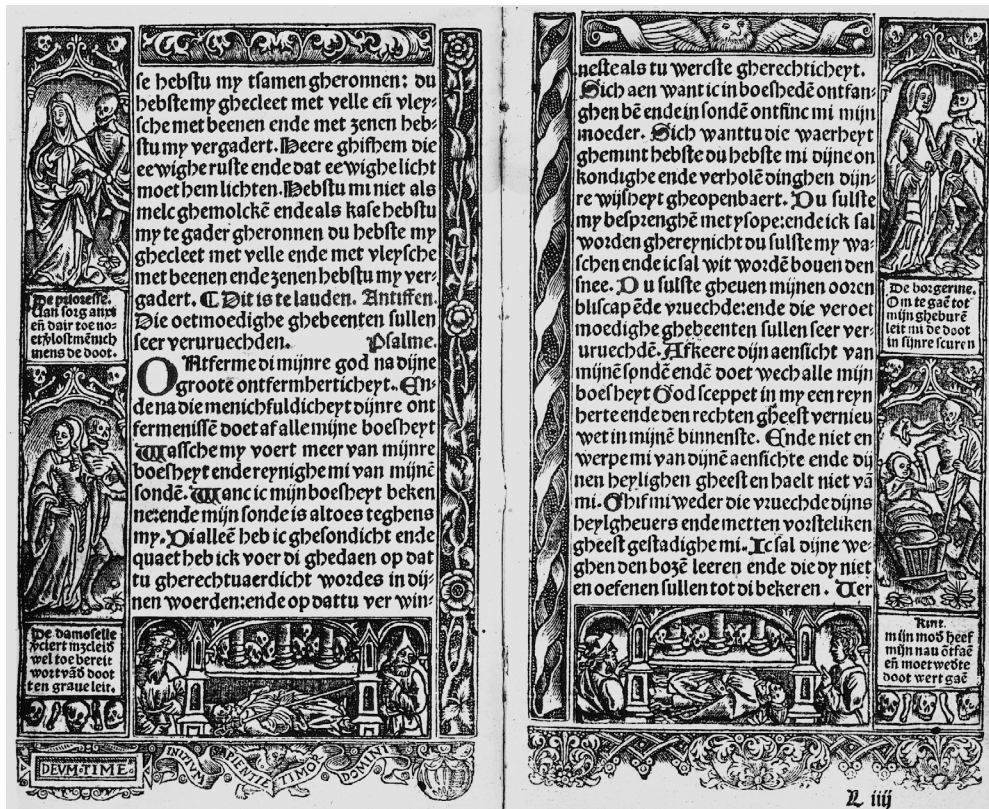 se hebstu my tsamen gheronnen: du
hebste my ghecleet met velle eñ vley-
sche met beenen ende met zenen heb-
stu my vergadert. Heere ghifhem die
eewighe ruste ende dat eewighe licht
moet hem lichten. Hebstu mi niet als
melc ghemolckē ende als kase hebstu
my te gader gheronnen du hebste my
ghecleet met velle ende met vleysche
met beenen ende zenen hebstu my ver-
gadert. ¶ Dit is te lauden. Antiffen.
Die oetmoedighe ghebeenten sullen
seer veruruechden. Psalme.
ONtferme di mijnre god na dijne
groote ontfermherticheyt. En-
de na die menichfuldicheyt dijnre ont
fermenissē doet af alle mijne boesheyt
Wassche my voert meer van mijnre
boesheyt ende reynighe mi van mijnē
sondē. Wanc ic mijn boesheyt beken
ne: ende mijn sonde is altoes teghens
my. Di alleē heb ic ghesondicht ende
quaet heb ick voer di ghedaen op dat
tu gherechtuaerdicht wordes in dij-
nen woerden: ende op dattu ver win-
De prioresse.
Van sorg anxt
eñ dair toe no-
De damoselle
wel toe bereit
ten graue leit.
DEVM TIME
INITIVM SAPIENTIE TIMOR DOMINI
neste als tu wercste gherechticheyt.
Sich aen want ic in boeshedē ontfan-
ghen bē ende in sondē ontfinc mi mijn
moeder. Sich wanttu die waerheyt
ghemint hebste du hebste mi dijne on
kondighe ende verholē dinghen dijn-
re wijsheyt gheopenbaert. Du sulste
my besprenghē met ysope: ende ick sal
worden ghereynicht du sulste my wa-
schen ende ic sal wit wordē bouen den
snee. Du sulste gheuen mijnen ooren
bliscap ēde vruechde: ende die veroet
moedighe ghebeenten sullen seer ver-
uruechdē. Afkeere dijn aensicht van
mijnē sondē endē doet wech alle mijn
boesheyt God sceppet in my een reyn
herte ende den rechten gheest vernieu
wet in mijnē binnenste. Ende niet en
werpe mi van dijnē aensichte ende dij
nen heylighen gheest en haelt niet vā
mi. Ghif mi weder die vruechde dijns
heylgheuers ende metten vorsteliken
gheest gestadighe mi. Ic sal dijne we-
ghen den bozē leeren ende die dy niet
en oefenen sullen tot di bekeren. Uer
De borgerine.
Om te gaē tot
mijn gheburē
leit mi de doot
in sijnre scuren
Kint.
mijn mod heef
mijn nau ōtfaē
eñ moet wedte
doot wert gaē
L iiij